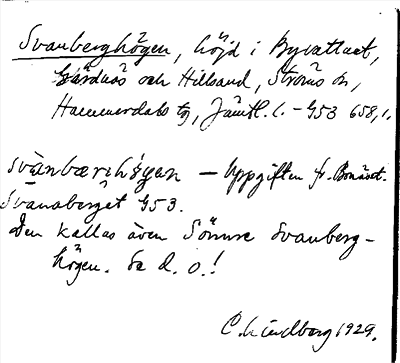 Svanberghögen, höjd i Byvattnet,
Gärdnäs och Hillsand, Ströms sn,
Hammerdals tg, Jämtl. l. – G53 658,1.
svànbærıhøgan – Uppgiften fr. Bonäset.
Svanaberget G53.
Den kallas även Sömmre Svanberg-
högen. Se d. o.!
C. Lindberg 1929.